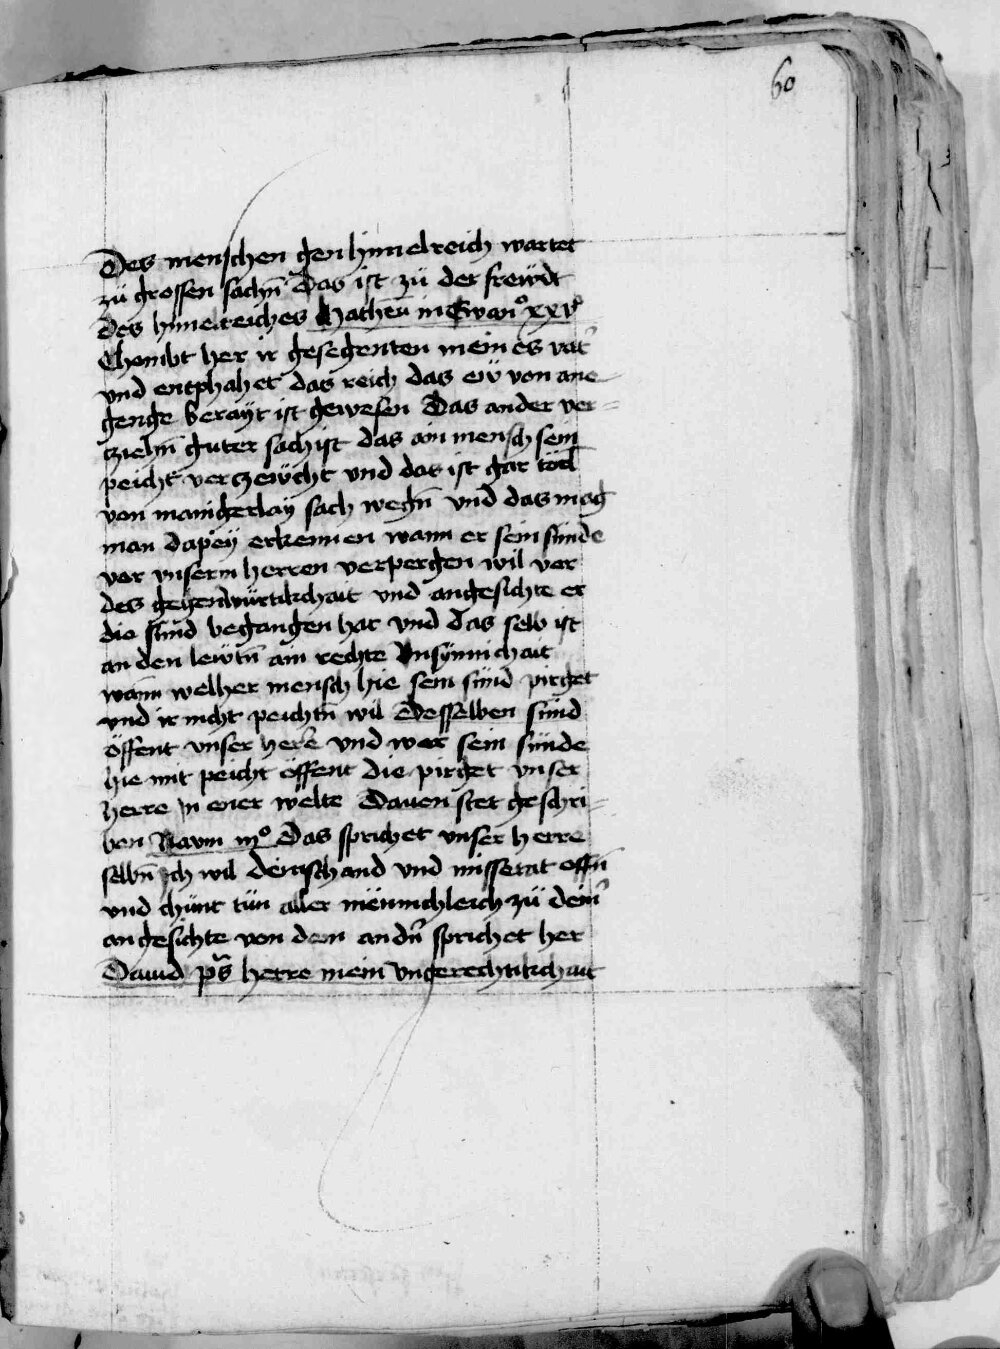 60
Des menschen gen himelreich wartet
zü grossen sachn̄ Das ist zü der frewdt
des himelreiches Matheu̅ in Ewan° xxv°
Chombt her ir gesegenten meines vat᷑
vnd entphahet das reich das ew von ane
genge berayt ist gewesen Das ander ver=
cziehn̄ guter sach ist das ain mensch sein
peicht verczewcht vnd das ist gar tötl
von manigerlay sach wegn̄ vnd das mag
man dapey erkennen wann er sein sünde
vor vnserm herren verpergen wil vor
des gegenwürtikchait vnd angesichte er
die sünd begangen hat vnd das selb ist
an den lewtn̄ ain rechte vnsynnichait
wann welher mensch hie sein sünd pirget
und ir nicht peichtn̄ wil Desselben sünd
öffent vnser herre vnd wer sein sünde
hie mit peicht öffent die pirget vnser
herre in ener welte Dauon stet geschri=
ben Naum iij° Das sprichet vnser herre
selbn̄ Ich wil dein schand vnd missetat offn̄
vnd chunt tün aller männichleich zü dein᷑
angesichte von dem andn̄ sprichet her
Dauid ps̄ herre mein vngerechtikchait